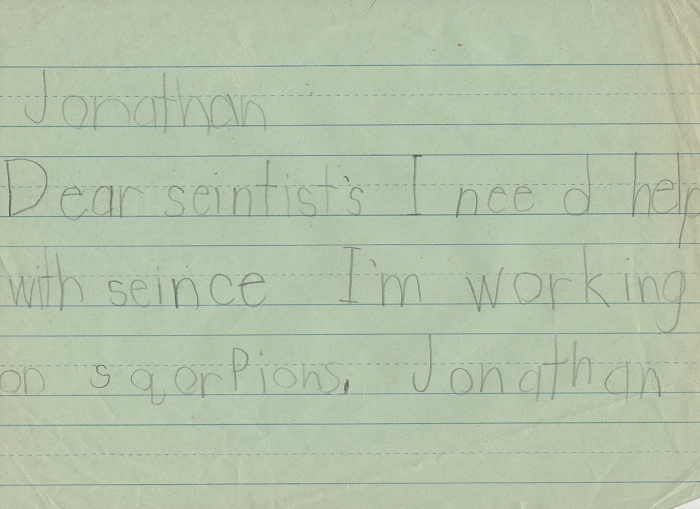 Jonathan
Dear seintist's I need help
with seince I'm working
on sqorpions. Jonathan